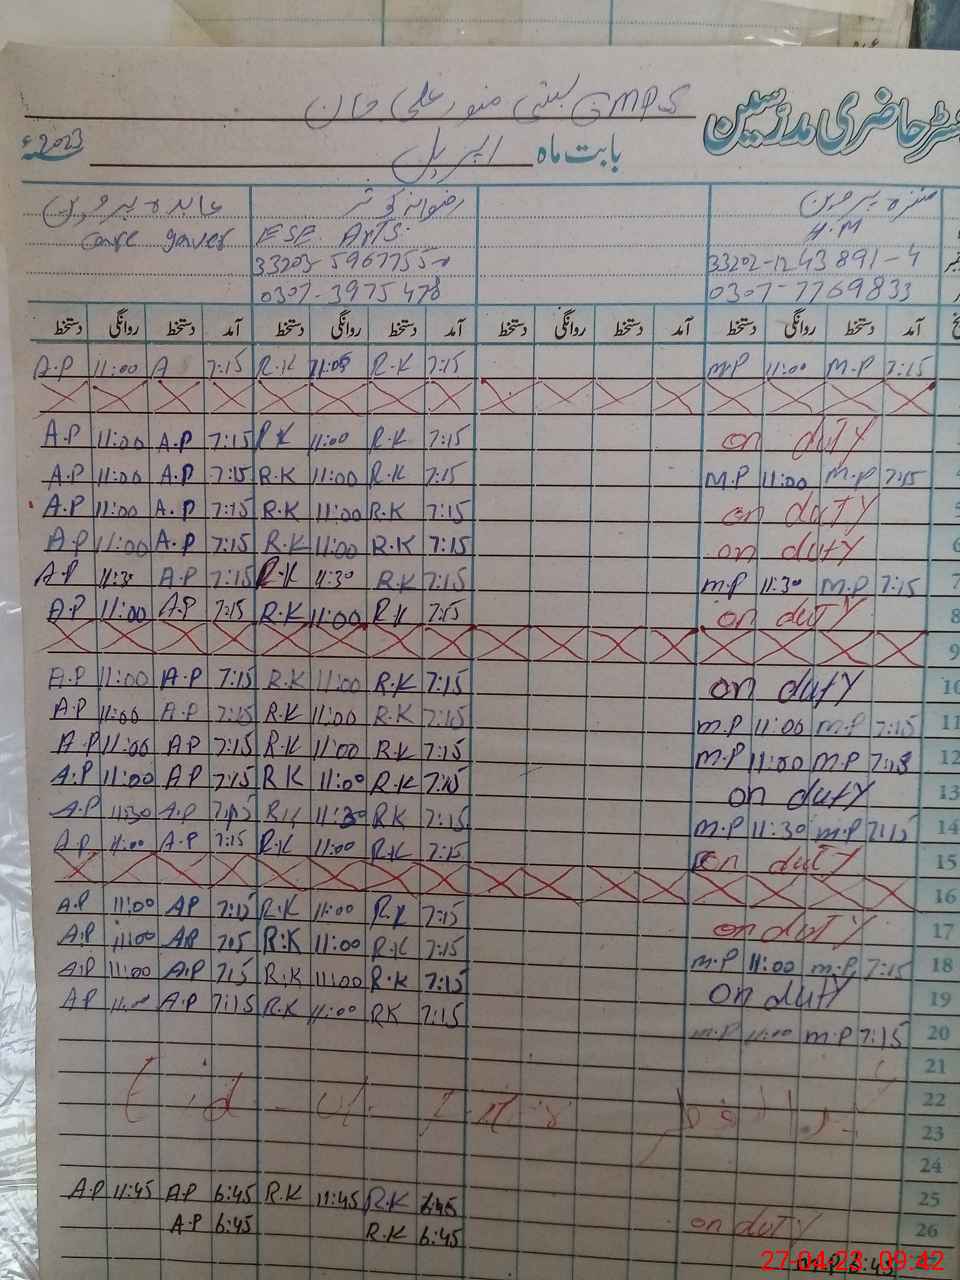 رجسٹر حاضری مدرسین
GMPS بستی منور علی جان
بابت ماہ اپریل 2023ء
منزہ پروین رضوانہ کوثر عابدہ پروین
H.M ESE Arts. Care gaver
33202-1243891-4
0307-7769833 0307-3975478
آمد دستخط روانگی دستخط آمد دستخط روانگی دستخط آمد دستخط روانگی دستخط آمد دستخط روانگی دستخط
A.P 11:00 A 7:15 R.K 11:00 R.K 7:15 M.P 11:00 M.P 7:15
A.P 11:00 A.P 7:15 R.K 11:00 R.K 7:15 on duty
A.P 11:00 A.P 7:15 R.K 11:00 R.K 7:15 M.P 11:00 M.P 7:15
A.P 11:00 A.P 7:15 R.K 11:00 R.K 7:15 on duty
A.P 11:00 A.P 7:15 R.K 11:00 R.K 7:15 on duty 6
A.P 11:30 A.P 7:15 R.K 11:30 R.K 7:15 M.P 11:30 M.P 7:15 7
A.P 11:00 A.P 7:15 R.K 11:00 R.K 7:15 on duty 8
9
A.P 11:00 A.P 7:15 R.K 11:00 R.K 7:15 on duty 10
A.P 11:00 A.P 7:15 R.K 11:00 R.K 7:15 M.P 11:00 M.P 7:15 11
A.P 11:00 A.P 7:15 R.K 11:00 R.K 7:15 M.P 11:00 M.P 7:15 12
A.P 11:00 A.P 7:15 R.K 11:00 R.K 7:15 on duty 13
A.P 11:30 A.P 7:15 R.K 11:30 R.K 7:15 M.P 11:30 M.P 7:15 14
A.P 11:00 A.P 7:15 R.K 11:00 R.K 7:15 on duty 15
16
A.P 11:00 A.P 7:15 R.K 11:00 R.K 7:15 on duty 17
A.P 11:00 A.P 7:15 R.K 11:00 R.K 7:15 M.P 11:00 M.P 7:15 18
A.P 11:00 A.P 7:15 R.K 11:00 R.K 7:15 on duty 19
M.P 11:00 M.P 7:15 20
21
Eid-ul-Fitr عید الفطر 22
23
24
A.P 11:45 A.P 6:45 R.K 11:45 R.K 6:45 25
A.P 6:45 R.K 6:45 on duty 26
M.P 6:45
27-04-23 09:42